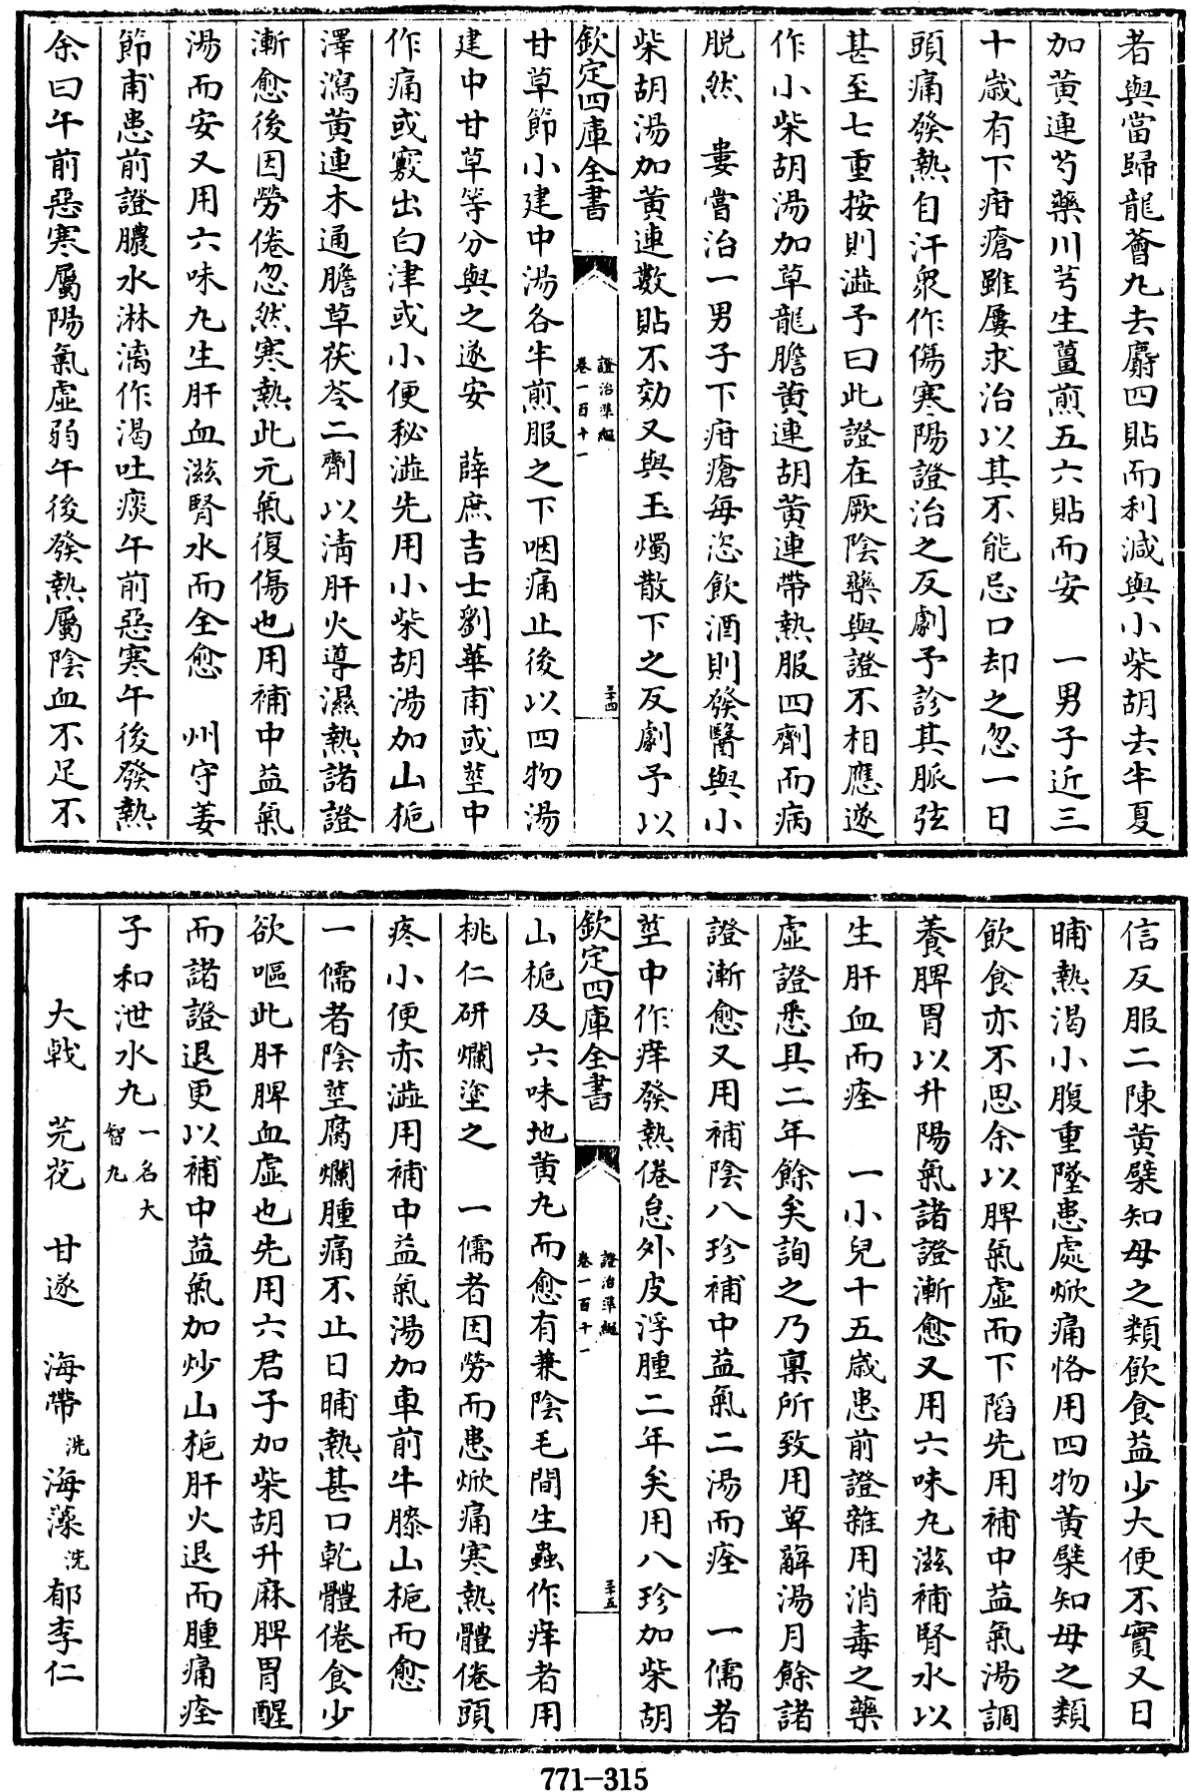 者與當歸龍薈丸去麝四貼而利減與小柴胡去半夏
加黄連芍藥川芎生薑煎五六貼而安　一男子近三
十歳有下疳瘡雖屢求治以其不能忌口却之忽一日
頭痛發熱自汗衆作傷寒陽證治之反劇予診其脈弦
甚至七重按則澁予曰此證在厥陰藥與證不相應遂
作小柴胡湯加草龍膽黄連胡黄連帶熱服四劑而病
脱然　婁嘗治一男子下疳瘡每恣飲酒則發醫與小
柴胡湯加黄連數貼不効又與玉燭散下之反劇予以
欽定四庫全書
證治準繩
卷一百十一
三十四
甘草節小建中湯各半煎服之下咽痛止後以四物湯
建中甘草等分與之遂安　薛庶吉士劉華甫或莖中
作痛或竅出白津或小便秘澁先用小柴胡湯加山梔
澤瀉黄連木通膽草茯苓二劑以清肝火導濕熱諸證
漸愈後因勞倦忽然寒熱此元氣復傷也用補中益氣
湯而安又用六味丸生肝血滋腎水而全愈　州守姜
節甫患前證膿水淋漓作渴吐痰午前惡寒午後發熱
余曰午前惡寒屬陽氣虛弱午後發熱屬陰血不足不
信反服二陳黄蘖知母之類飲食益少大便不實又日
晡熱渴小腹重墜患處焮痛恪用四物黄蘖知母之類
飲食亦不思余以脾氣虛而下䧟先用補中益氣湯調
養脾胃以升陽氣諸證漸愈又用六味丸滋補腎水以
生肝血而痊　一小兒十五歳患前證雜用消毒之藥
虛證悉具二年餘矣詢之乃稟所致用萆薢湯月餘諸
證漸愈又用補陰八珍補中益氣二湯而痊　一儒者
莖中作痒發熱倦怠外皮浮腫二年矣用八珍加柴胡
欽定四庫全書
證治準繩
卷一百十一
三十五
山梔及六味地黄丸而愈有兼陰毛間生蟲作痒者用
桃仁研爛塗之　一儒者因勞而患焮痛寒熱體倦頭
疼小便赤澁用補中益氣湯加車前牛膝山梔而愈
一儒者陰莖腐爛腫痛不止日晡熱甚口乾體倦食少
欲嘔此肝脾血虛也先用六君子加柴胡升麻脾胃醒
而諸證退更以補中益氣加炒山梔肝火退而腫痛痊
子和泄水丸一名大智丸
大戟　芫花　甘遂　海帶洗　海藻洗　郁李仁
771-315